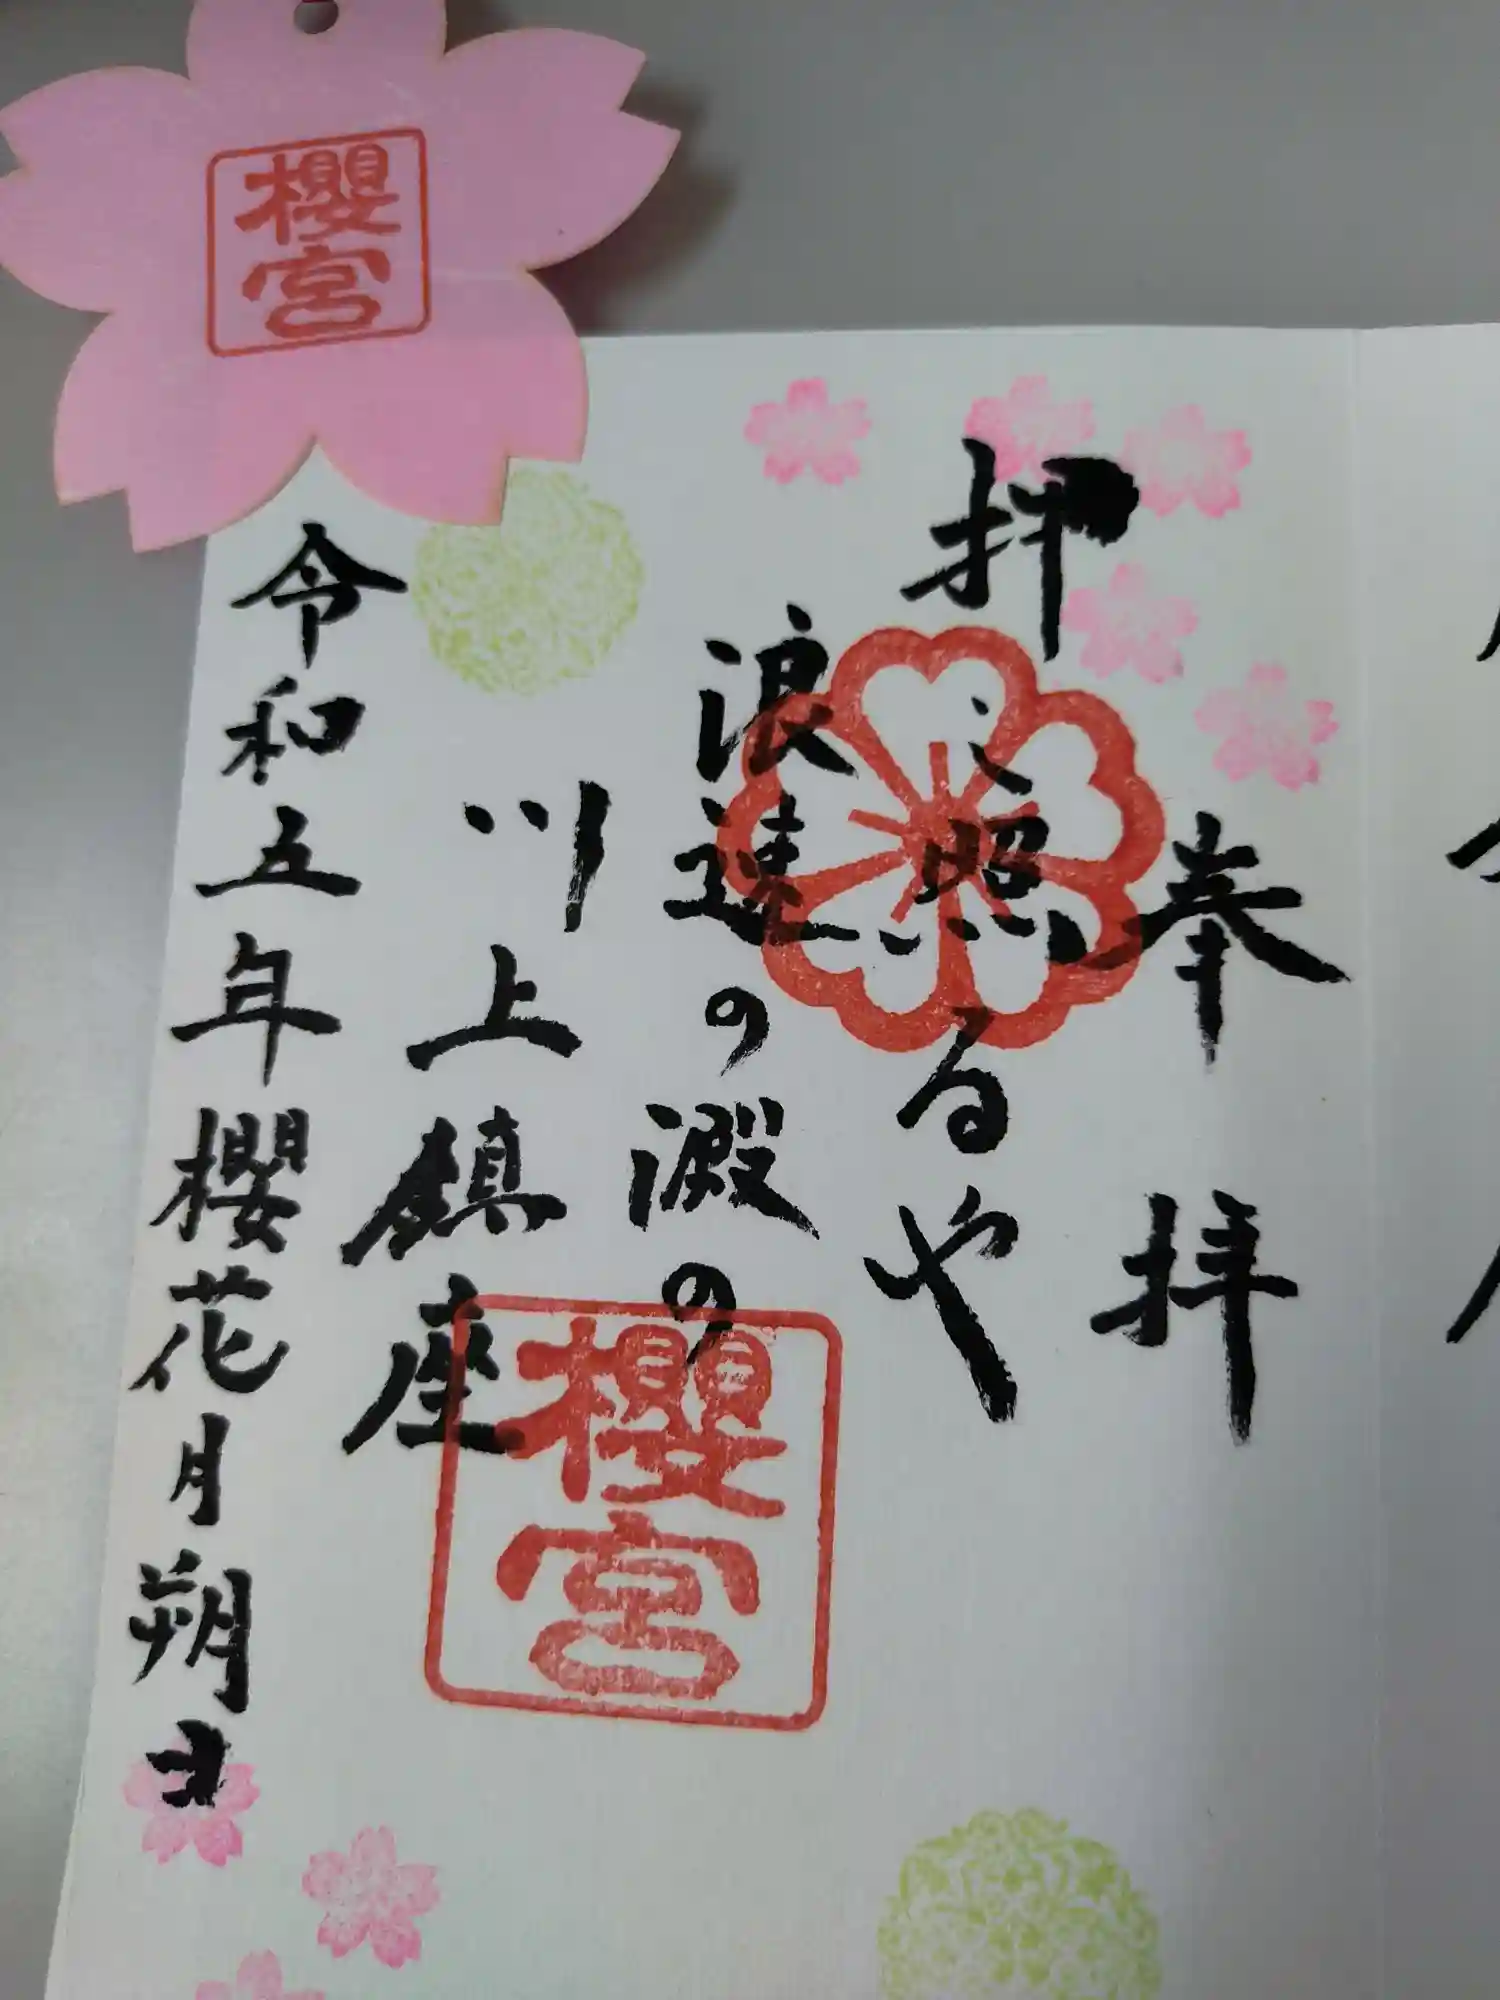 奉拝
押し照るや
浪速の澱の
川上鎮座
櫻宮
令和五年櫻花月朔日
櫻宮